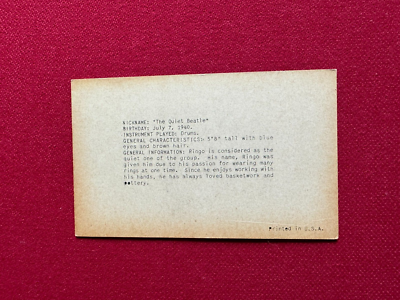 NICKNAME: "The Quiet Beatle"
BIRTHDAY: July 7, 1940.
INSTRUMENT PLAYED: Drums.
GENERAL CHARACTERISTICS: 5"8" tall with blue
eyes and brown hair.
GENERAL INFORMATION: Ringo is considered as the
quiet one of the group. His name, Ringo was
given him due to his passion for wearing many
rings at one time. Since he enjoys working with
his hands, he has always loved basketwork and
pottery.
Printed in U.S.A.